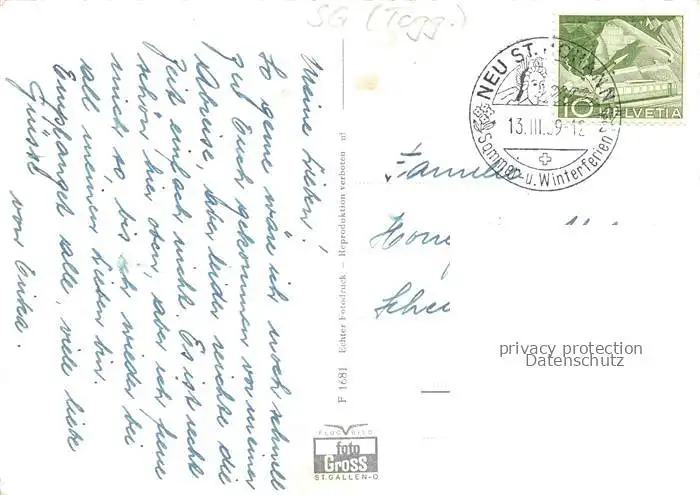 SG (Togg.)
Meine Lieben!
So gerne wäre ich noch schnell
zu Euch gekommen vor meiner
Abreise, aber leider reichte die
Zeit einfach nicht. Es ist recht
schön hier oben, aber ich freue
mich so, bis ich wieder bei
all meinen Lieben bin.
Empfanget alle, viele liebe
Grüsse von Erika.
F 1681 Echter Fotodruck – Reproduktion verboten
FLUGBILD
foto
Gross
ST. GALLEN-O
NEU ST. JOHANN
13.III.59-12
Sommer-u. Winterferien
10 HELVETIA
Familie
privacy protection
Datenschutz